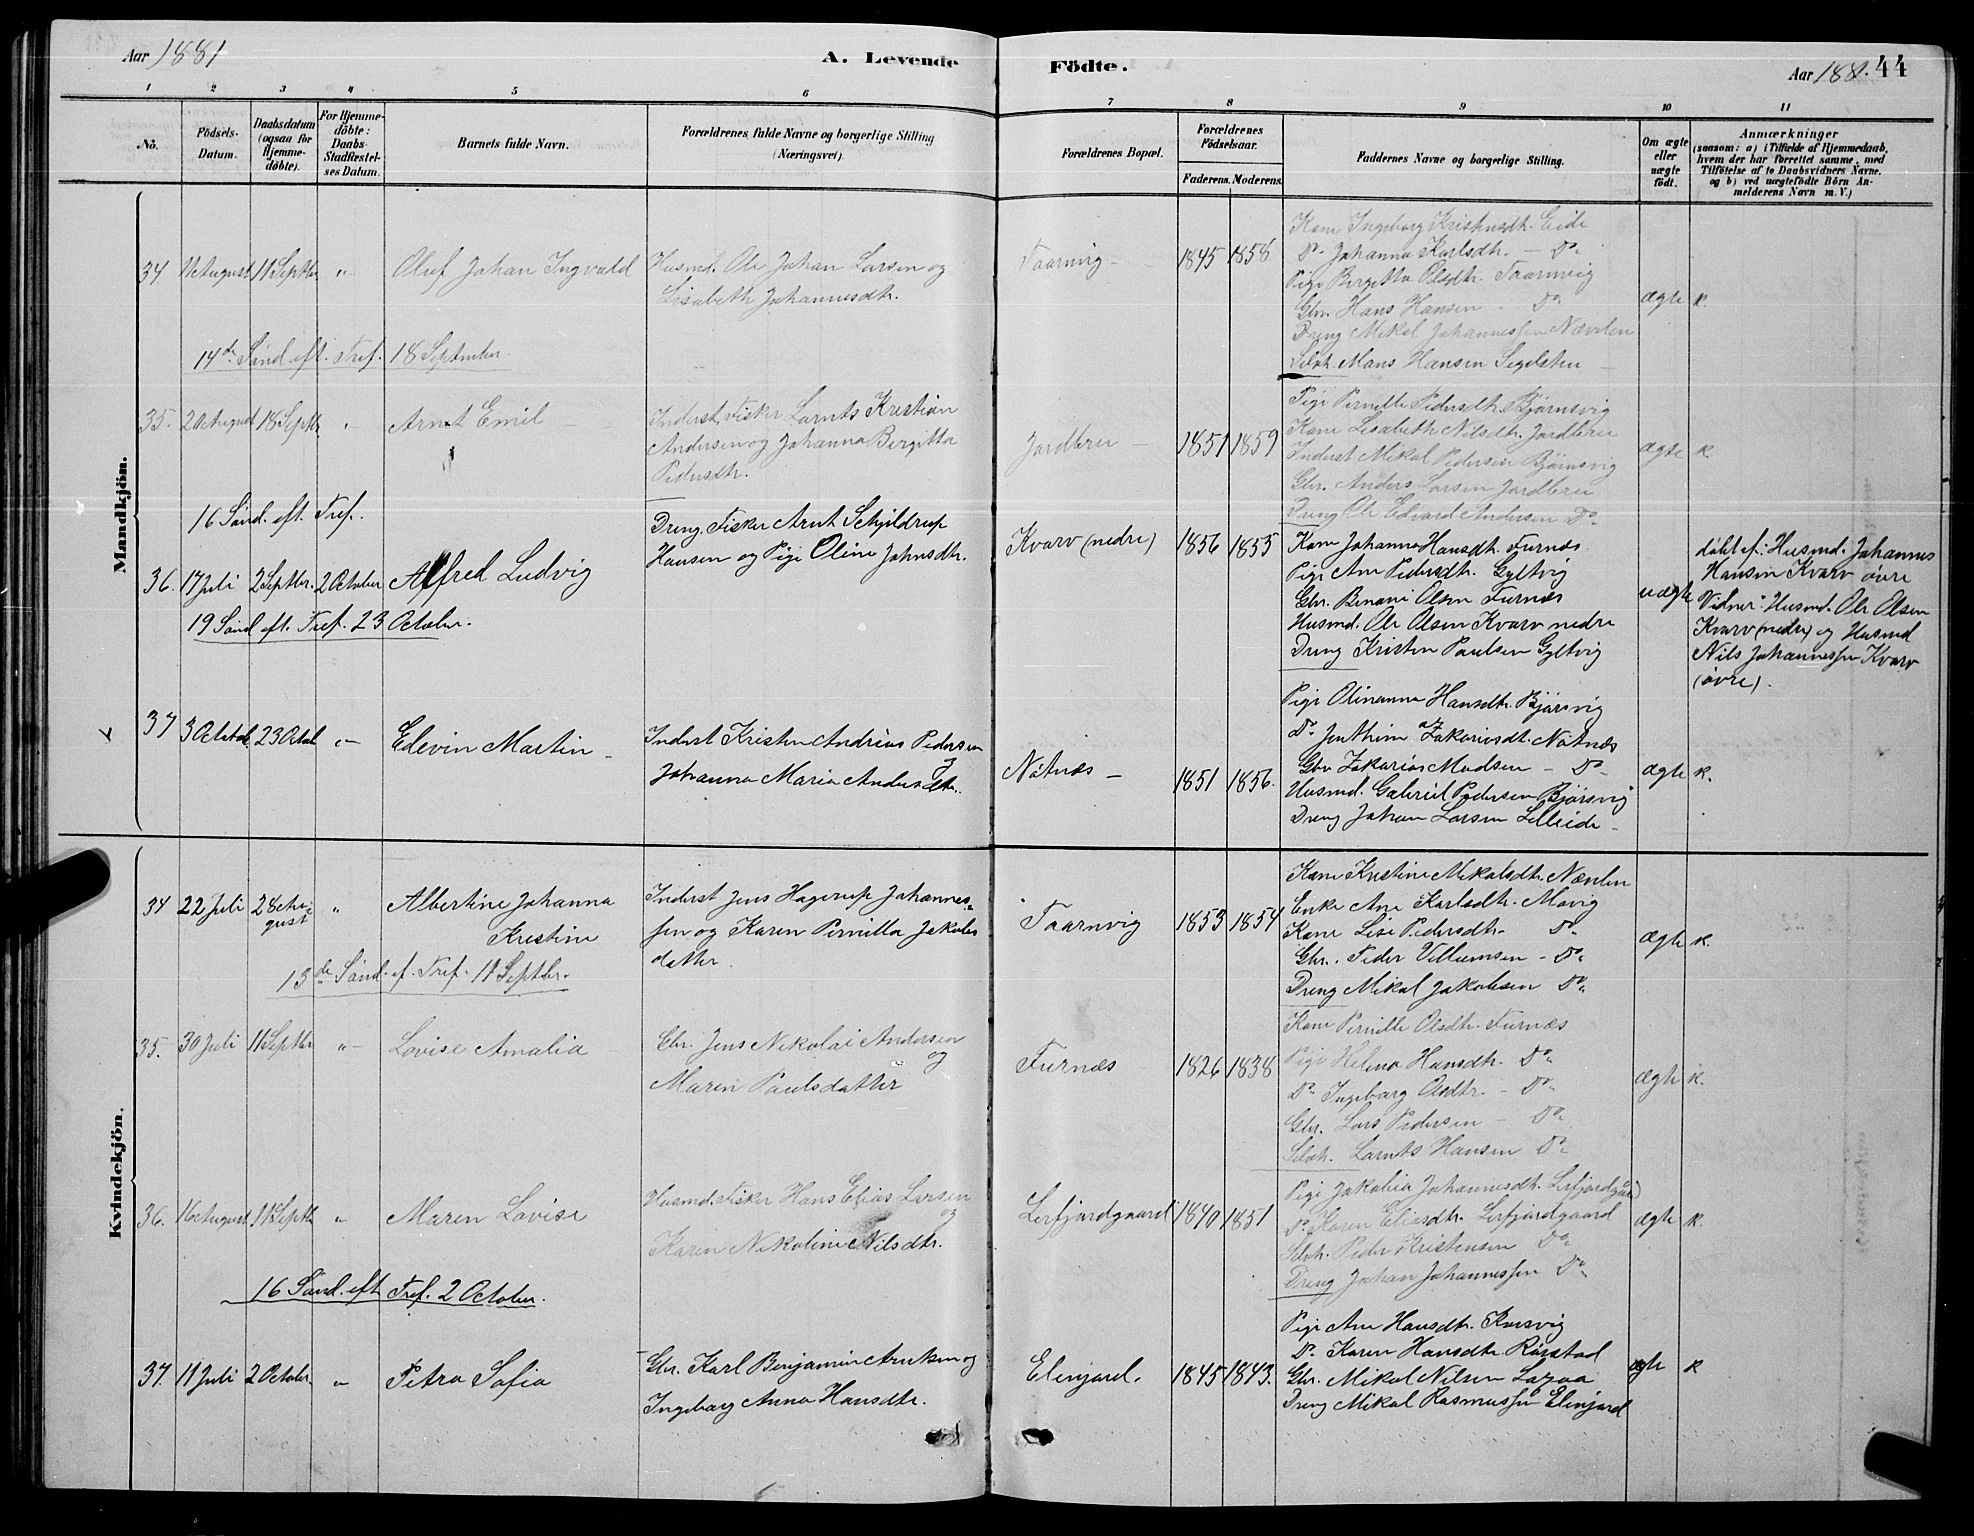 Aar 1881
A. Levende Födte.
Aar 1881. 44
1 2 3 4 5 6 7 8 9 10 11
No.
Födsels-Datum.
Daabsdatum (ogsaa for Hjemme-döbte).
For Hjemme-döbte: Daabs-Stadfæstel-ses Datum.
Barnets fulde Navn.
Forældrenes fulde Navne og borgerlige Stilling (Næringsvei).
Forældrenes Bopæl.
Forældrenes Födselsaar.
Faderens. Moderens.
Faddernes Navne og borgerlige Stilling.
Om ægte eller uægte födt.
Anmærkninger
(saasom: a) i Tilfælde af Hjemmedaab,
hvem der har forrettet samme, med
Tilföielse af to Daabsvidners Navne.
og b) ved uægtefödte Börn An-
melderens Navn m. V.)
Mandkjön.
34 11 August 11 Septbr. " Oluf Johan Ingvald
Husmd. Ole Johan Larsen og
Lisabeth Johannesdtr.
Taarnvig - 1845 1858
Kone Ingeborg Kristensdtr. Eide
Do Johanna Karlsdtr. - Do
Pige Birgitta Olsdtr. Taarnvig
Gbr. Hans Hansen - Do
Dreng Mikal Johannessen Nævelen
Selvh. Mons Hansen Segelsten
ægte k.
14de Sönd. eft. Tref. 18 September.
35. 20 August 18 Septb. " Arnt Emil
Inderst, Fisker Larnts Kristian
Andersen og Johanna Birgitta
Pedersdtr.
Jordbru - 1851 1859
Pige Pernille Pedersdtr. Bjørnsvig
Kone Lisabeth Nilsdtr. Jordbru
Inderst Mikal Pedersen Bjørnsvig
Gbr. Anders Larsen Jordbru
Dreng Ole Edvard Andersen Do
ægte k.
16 Sönd. eft. Tref.
36. 17 Juli 2 Septbr. 2 October Alfred Ludvig
Dreng, Fisker Arnt Schjldrup
Hansen og Pige Oline Johnsdtr.
Kvarv (nedre) 1856 1855
Kone Johanna Hansdtr. Furnæs
Pige Ane Pedersdtr. Gyltvig
Gbr. Benoni Olsen Furnæs
Husmd. Ole Olsen Kvarv nedre
Dreng Kristen Paulsen Gyltvig
uægte
döbt af: Husmd. Johannes
Hansen Kvarv övre
Vidner: Husmd. Ole Olsen
Kvarv (nedre) og Husmd
Nils Johannessen Kvarv
(övre).
19 Sönd. eft. Tref. 23 October.
37 3 Octob. 23 Octob. " Edevin Martin -
Inderst Kristen Andreas Pedersen
og
Johanna Maria Andersdtr.
Nötnæs - 1851 1856.
Pige Olinanna Hansdtr. Bjørsvig
Do Jenthine Zakariasdt. Nötnæs
Gbr Zakarias Madsen - Do
Husmd. Gabriel Pedersen Bjørsvig
Dreng Johan Larsen Lilleide
ægte k.
Kvindekjön.
34 22 Juli 28 August " Albertine Johanna
Kristine
Inderst Jens Hagerup Johannes-
sen og Karen Pernilla Jakobs
datter.
Taarnvig 1853 1854
Kone Kristine Mikalsdtr. Nævelen
Enke Ane Karlsdtr. Movig
Kone Lise Pedersdtr. Do
Gbr. Peder Villumsen - Do
Dreng Mikal Jakobsen Do
ægte k.
13de Sönd. ef. Tref. 11 Septbr.
35. 30 Juli 11 Septbr " Lovise Amalia
Gbr. Jens Nikolai Andersen
og
Maren Paulsdatter
Furnæs 1826 1838
Kone Pernille Olsdtr. Furnæs
Pige Helena Hansdtr. Do
Do Ingeborg Olsdtr. - Do
Gbr. Lars Pedersen - Do
Selvh. Larnts Hansen Do
ægte k.
36. 16 August 11 Septb. " Maren Lovise
Husmd. Fisker Hans Elias Larsen
og
Karen Nikoline Nilsdtr.
Lerfjordgaard 1840 1851
Pige Jakobia Johannesdtr. Lerfjordgaard
Do Karen Eliasdtr. Lerfjordgaard
Selvh. Peder Kristensen Do
Dreng Johan Johannessen Do
ægte k.
16 Sönd. eft Tref. 2 October.
37. 11 Juli 2 October. " Petra Sofia
Gbr. Karl Benjamin Arntsen og
Ingeborg Anna Hansdtr.
Elvnjord. 1845 1843.
Pige Ane Hansdtr. Korsvig
Do Karen Hansdtr. Rörstad
Gbr. Mikal Nilsen
Dreng Mikal Rasmussen Elvnjord
ægte k